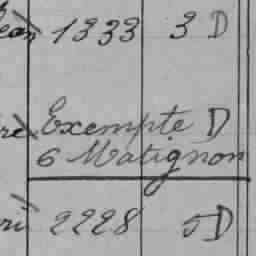 ean 1333 3 D
re Exempte D
6 Matignon
ri 2228 5 D